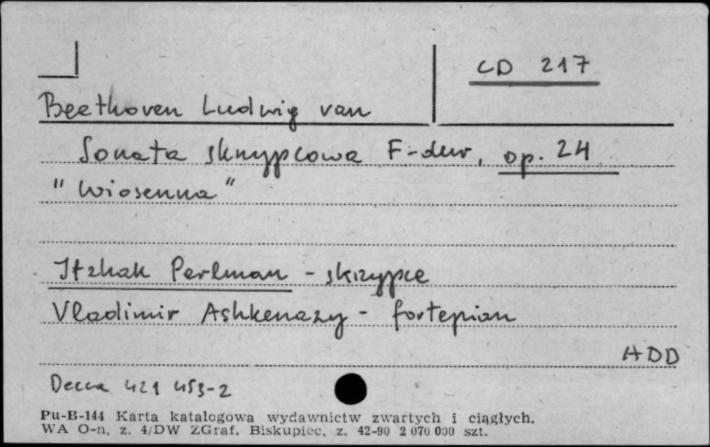 CD 217
Beethoven Ludwig van
Sonata skrzypcowa F-dur, op. 24
"Wiosenna"
Itzhak Perlman - skrzypce
Vladimir Ashkenazy - fortepian
ADD
Decca 421 453-2
Pu-B-144 Karta katalogowa wydawnictw zwartych i ciągłych.
WA O-n, z. 4/DW ZGraf. Biskupiec, z. 42-90 2 070 000 szt.